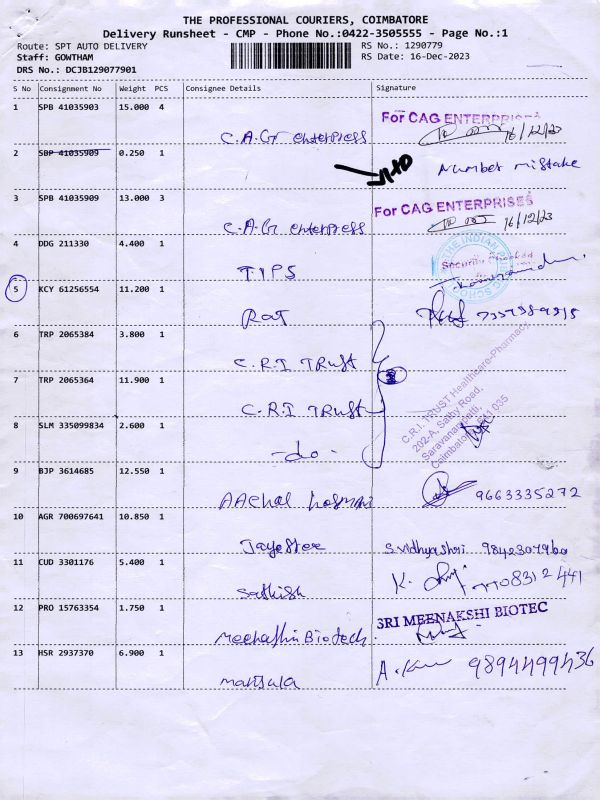 THE PROFESSIONAL COURIERS, COIMBATORE
Delivery Runsheet - CMP - Phone No.:0422-3505555 - Page No.:1
Route: SPT AUTO DELIVERY
RS No.: 1290779
Staff: GOWTHAM
RS Date: 16-Dec-2023
DRS No.: DCJB129077901
S No Consignment No Weight PCS Consignee Details Signature
1 SPB 41035903 15.000 4
For CAG ENTERPRISES
C.A.G enterpress 16/12/23
2 SBP 41035909 0.250 1
Number mistake
3 SPB 41035909 13.000 3
For CAG ENTERPRISES
C.A.G enterpress 16/12/23
4 DDG 211330 4.400 1
THE INDIAN SCHOOL
Security
TIPS
5 KCY 61256554 11.200 1
Rat
6 TRP 2065384 3.800 1
C.R.I TRust
7 TRP 2065364 11.900 1
C.R.I TRust
C.R.I. TRUST Healthcare-Pharmacy
202-A, Sathy Road,
Saravanampatti,
Coimbatore 641 035
8 SLM 335099834 2.600 1
-do-
9 BJP 3614685 12.550 1
AAchal 9663335272
10 AGR 700697641 10.850 1
Jayestee S.vidhyashri
11 CUD 3301176 5.400 1
Sathish K.
12 PRO 15763354 1.750 1
SRI MEENAKSHI BIOTEC
Biotech
13 HSR 2937370 6.900 1
Manjula 9894499436